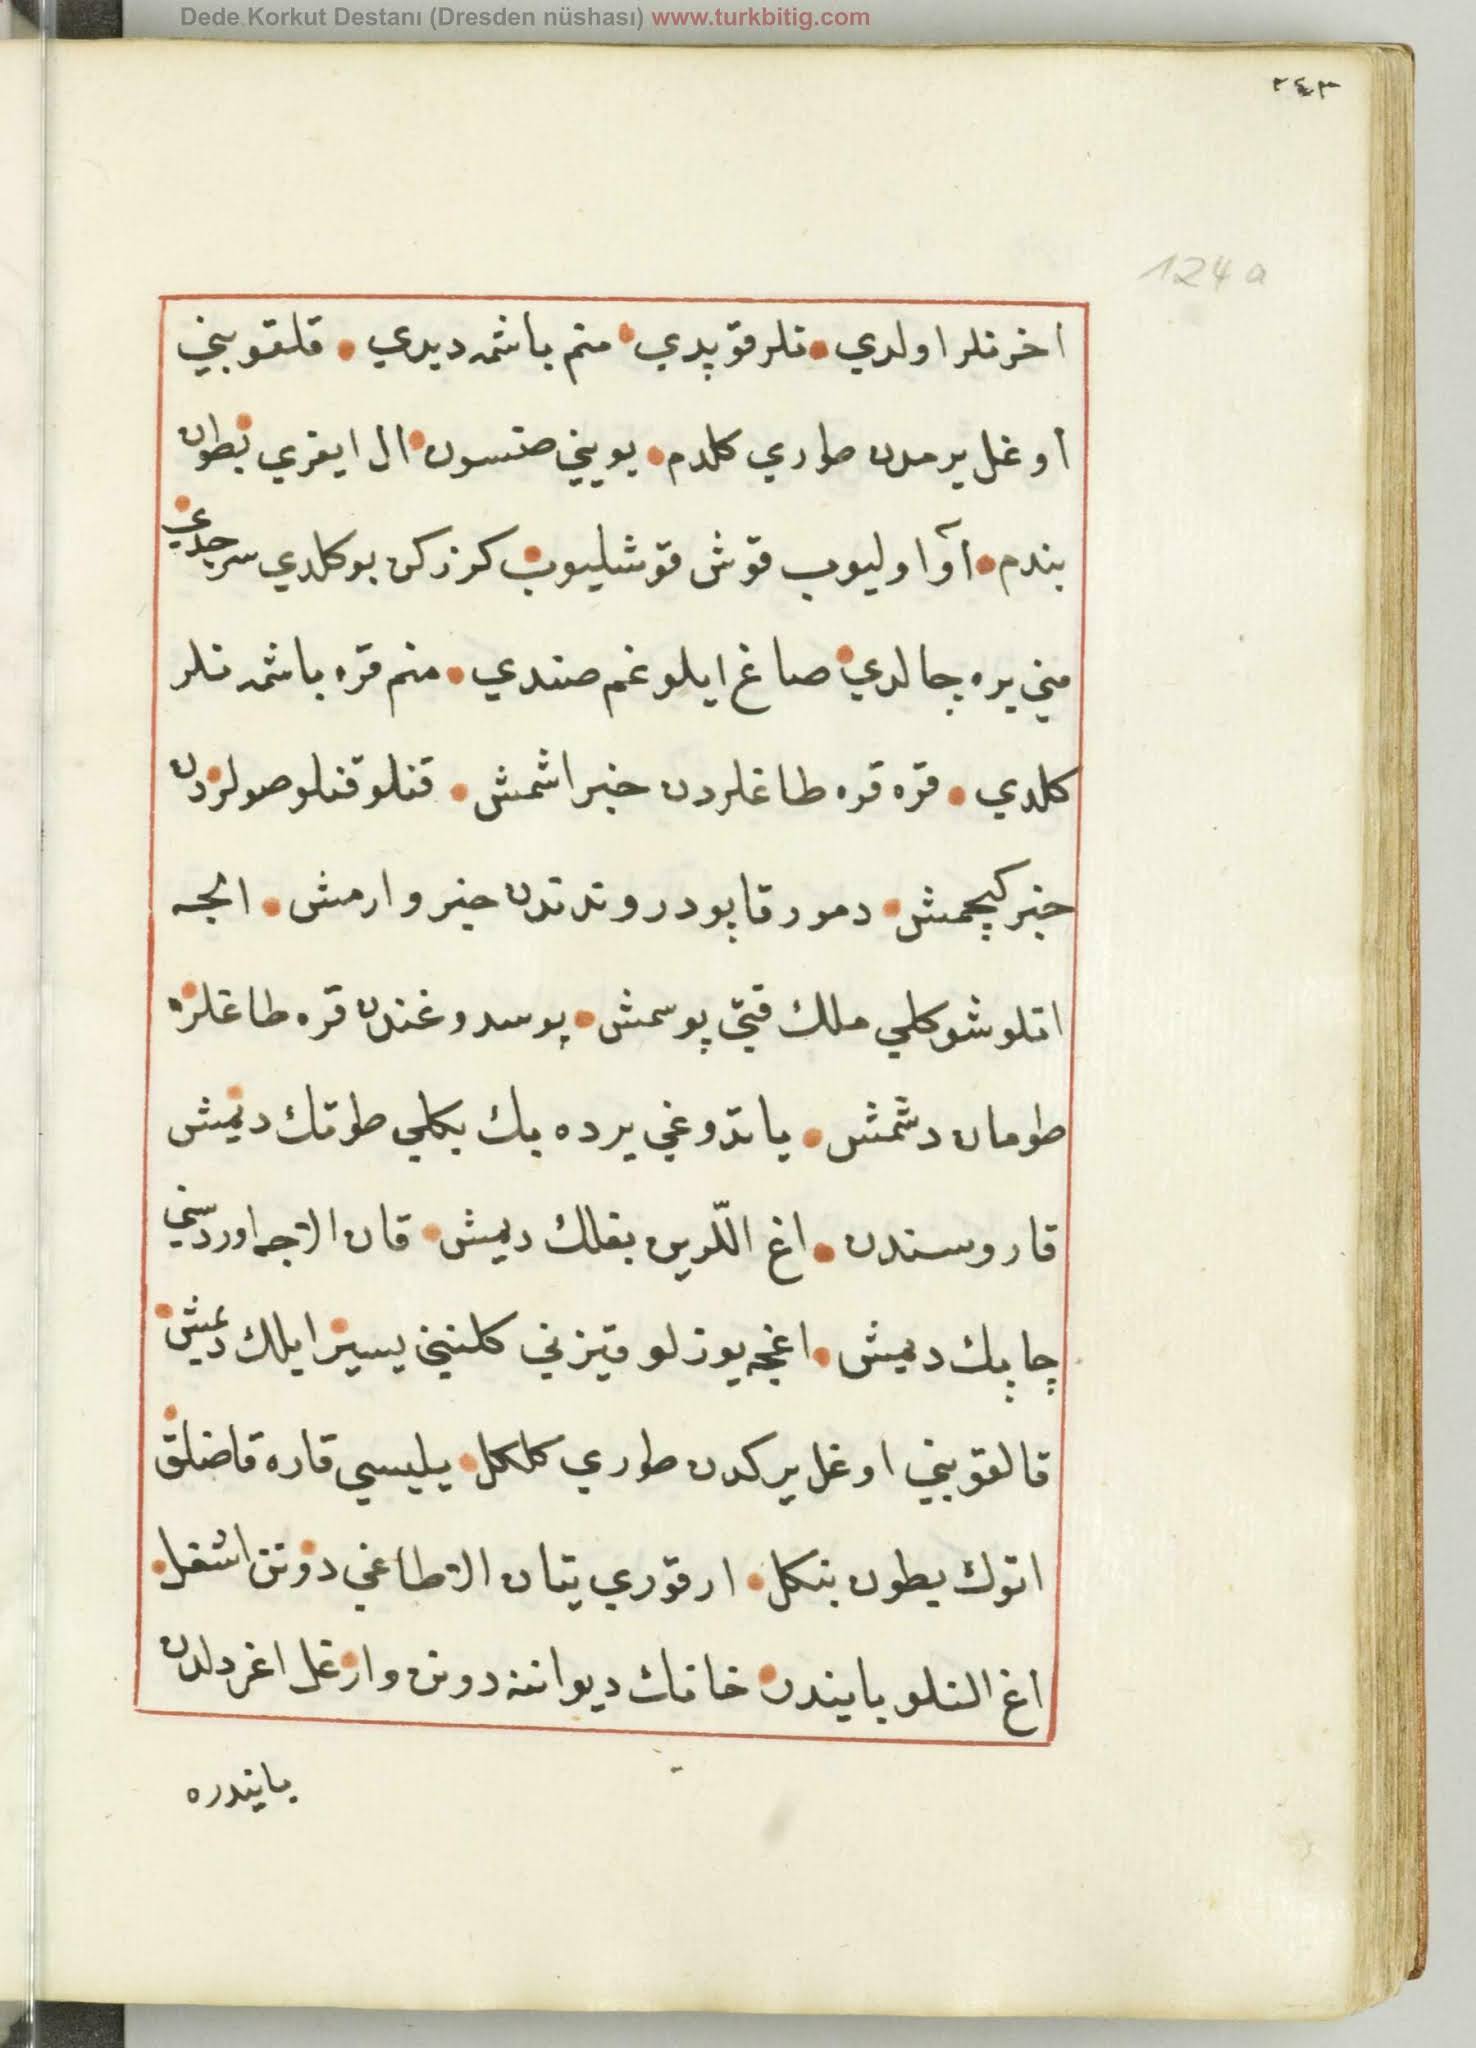 Dede Korkut Destanı (Dresden nüshası) www.turkbitig.com
٢٤٣
124a
اخر نلر اولدي • نلر قوپدي • منم باشمه ديدي • قلقوبني
اوغل يرمدن طوري كلدم • يويني صنسون • ال ايغري بطون
بندم • آو اوليوب قوش قوشليوب كزركن بوكلدي سرجدي
مني يره چالدي • صاغ ايلوغم صندي • منم قره باشمه نلر
كلدي • قره قره طاغلردن خبر اشمش • قنلو قنلو صولردن
خبر كچمش • دمور قاپو درونددن خبر وارمش • الجه
اتلو شوكلي ملك قتي پوسمش • پوسدوغندن قره طاغلره
طومان دشمش • ياتدوغي يرده بك بكلي طوتك ديمش
قاروسندن • اغ اللرين بغلك ديمش • قان الاجه اوردسني
چاپك ديمش • اغجه يوزلو قيزني كلنيني يسير ايلك ديمش
قالقوبني اوغل يركدن طوري كلكل • يليسي قاره قاضلق
اتوك بطون بنكل • ارقوري يتان الاطاغي دونن اشغل
اغ النلو بايندر خانك ديواننه دونن وارغل اغز دلدن
بايندره